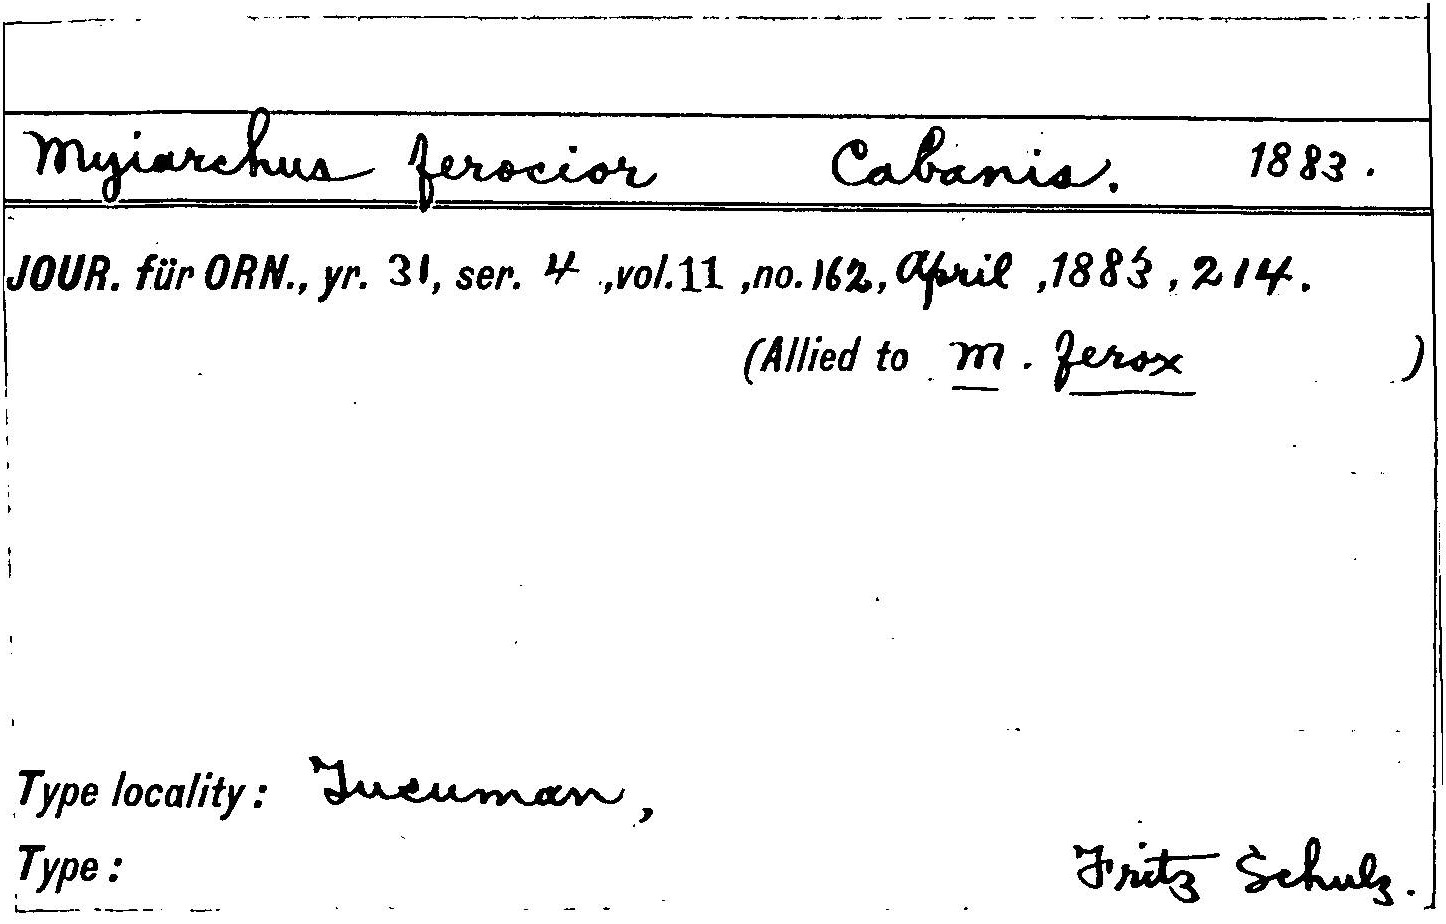 Myiarchus ferocior Cabanis. 1883.
JOUR. für ORN., yr. 31, ser. 4 ,vol. 11 ,no. 162, April ,1883 , 214.
(Allied to M. ferox )
Type locality: Tucuman,
Type: Fritz Schulz.